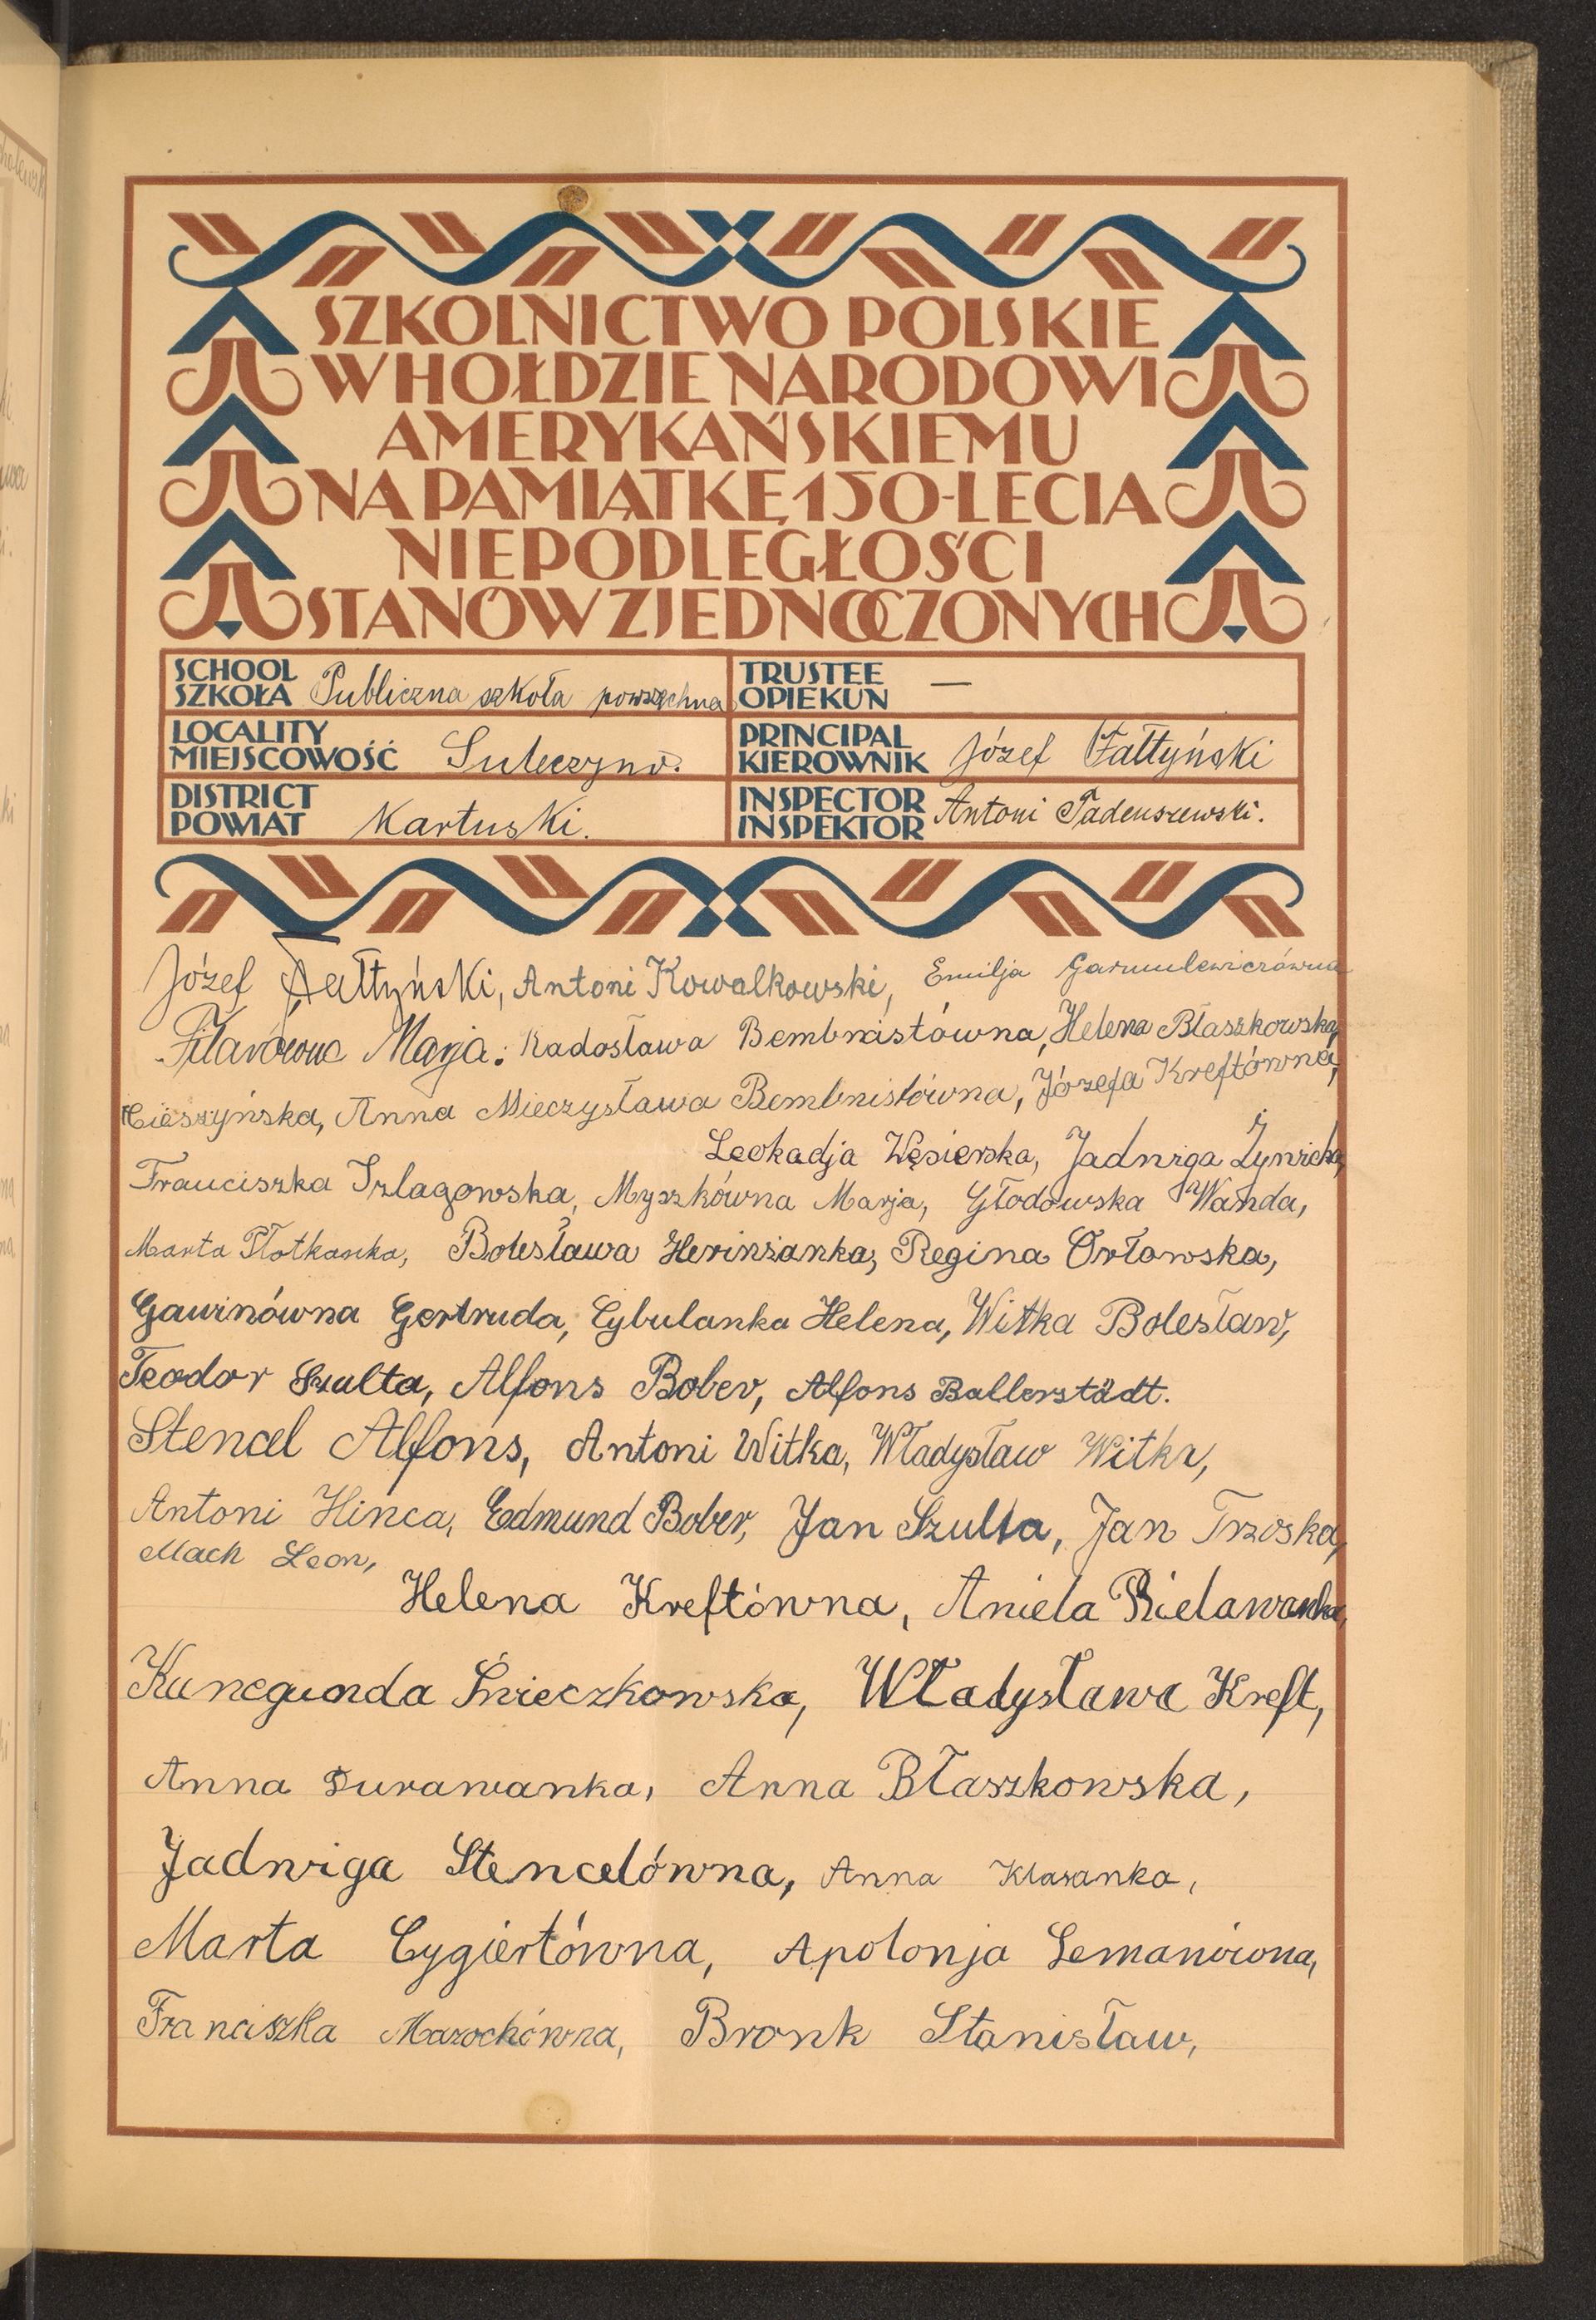 SZKOLNICTWO POLSKIE
W HOŁDZIE NARODOWI
AMERYKAŃSKIEMU
NA PAMIĄTKĘ 150-LECIA
NIEPODLEGŁOŚCI
STANÓW ZJEDNOCZONYCH
SCHOOL
SZKOŁA Publiczna szkoła powszechna
TRUSTEE
OPIEKUN —
LOCALITY
MIEJSCOWOŚĆ Suleczyno.
PRINCIPAL
KIEROWNIK Józef Fałtyński
DISTRICT
POWIAT Kartuski.
INSPECTOR
INSPEKTOR Antoni Tadeuszewski.
Józef Fałtyński, Antoni Kowalkowski, Emilja Garmulewiczówna
Filarówna Marja. Radosława Bembnistówna, Helena Błaszkowska,
Cieszyńska, Anna Mieczysława Bembnistówna, Józefa Kreftówna,
Leokadja Węsierska, Jadwiga Żynicka,
Franciszka Szlagowska, Myszkówna Marja, Głodowska Wanda,
Marta Płotkanka, Bolesława Herinżanka, Regina Orłowska,
Gawinówna Gertruda, Cybulanka Helena, Witka Bolesław,
Teodor Szulta, Alfons Bober, Alfons Ballerstädt.
Stencel Alfons, Antoni Witka, Władysław Witka,
Antoni Hinca, Edmund Bober, Jan Szulta, Jan Trzoska,
Mach Leon,
Helena Kreftówna, Aniela Bielawanka,
Kunegunda Śnieczkowska, Władysława Kreft,
Anna Durawanka, Anna Błaszkowska,
Jadwiga Stencelówna, Anna Klasanka,
Marta Cygiertówna, Apolonja Lemanówna,
Franciszka Mazochówna, Bronk Stanisław,